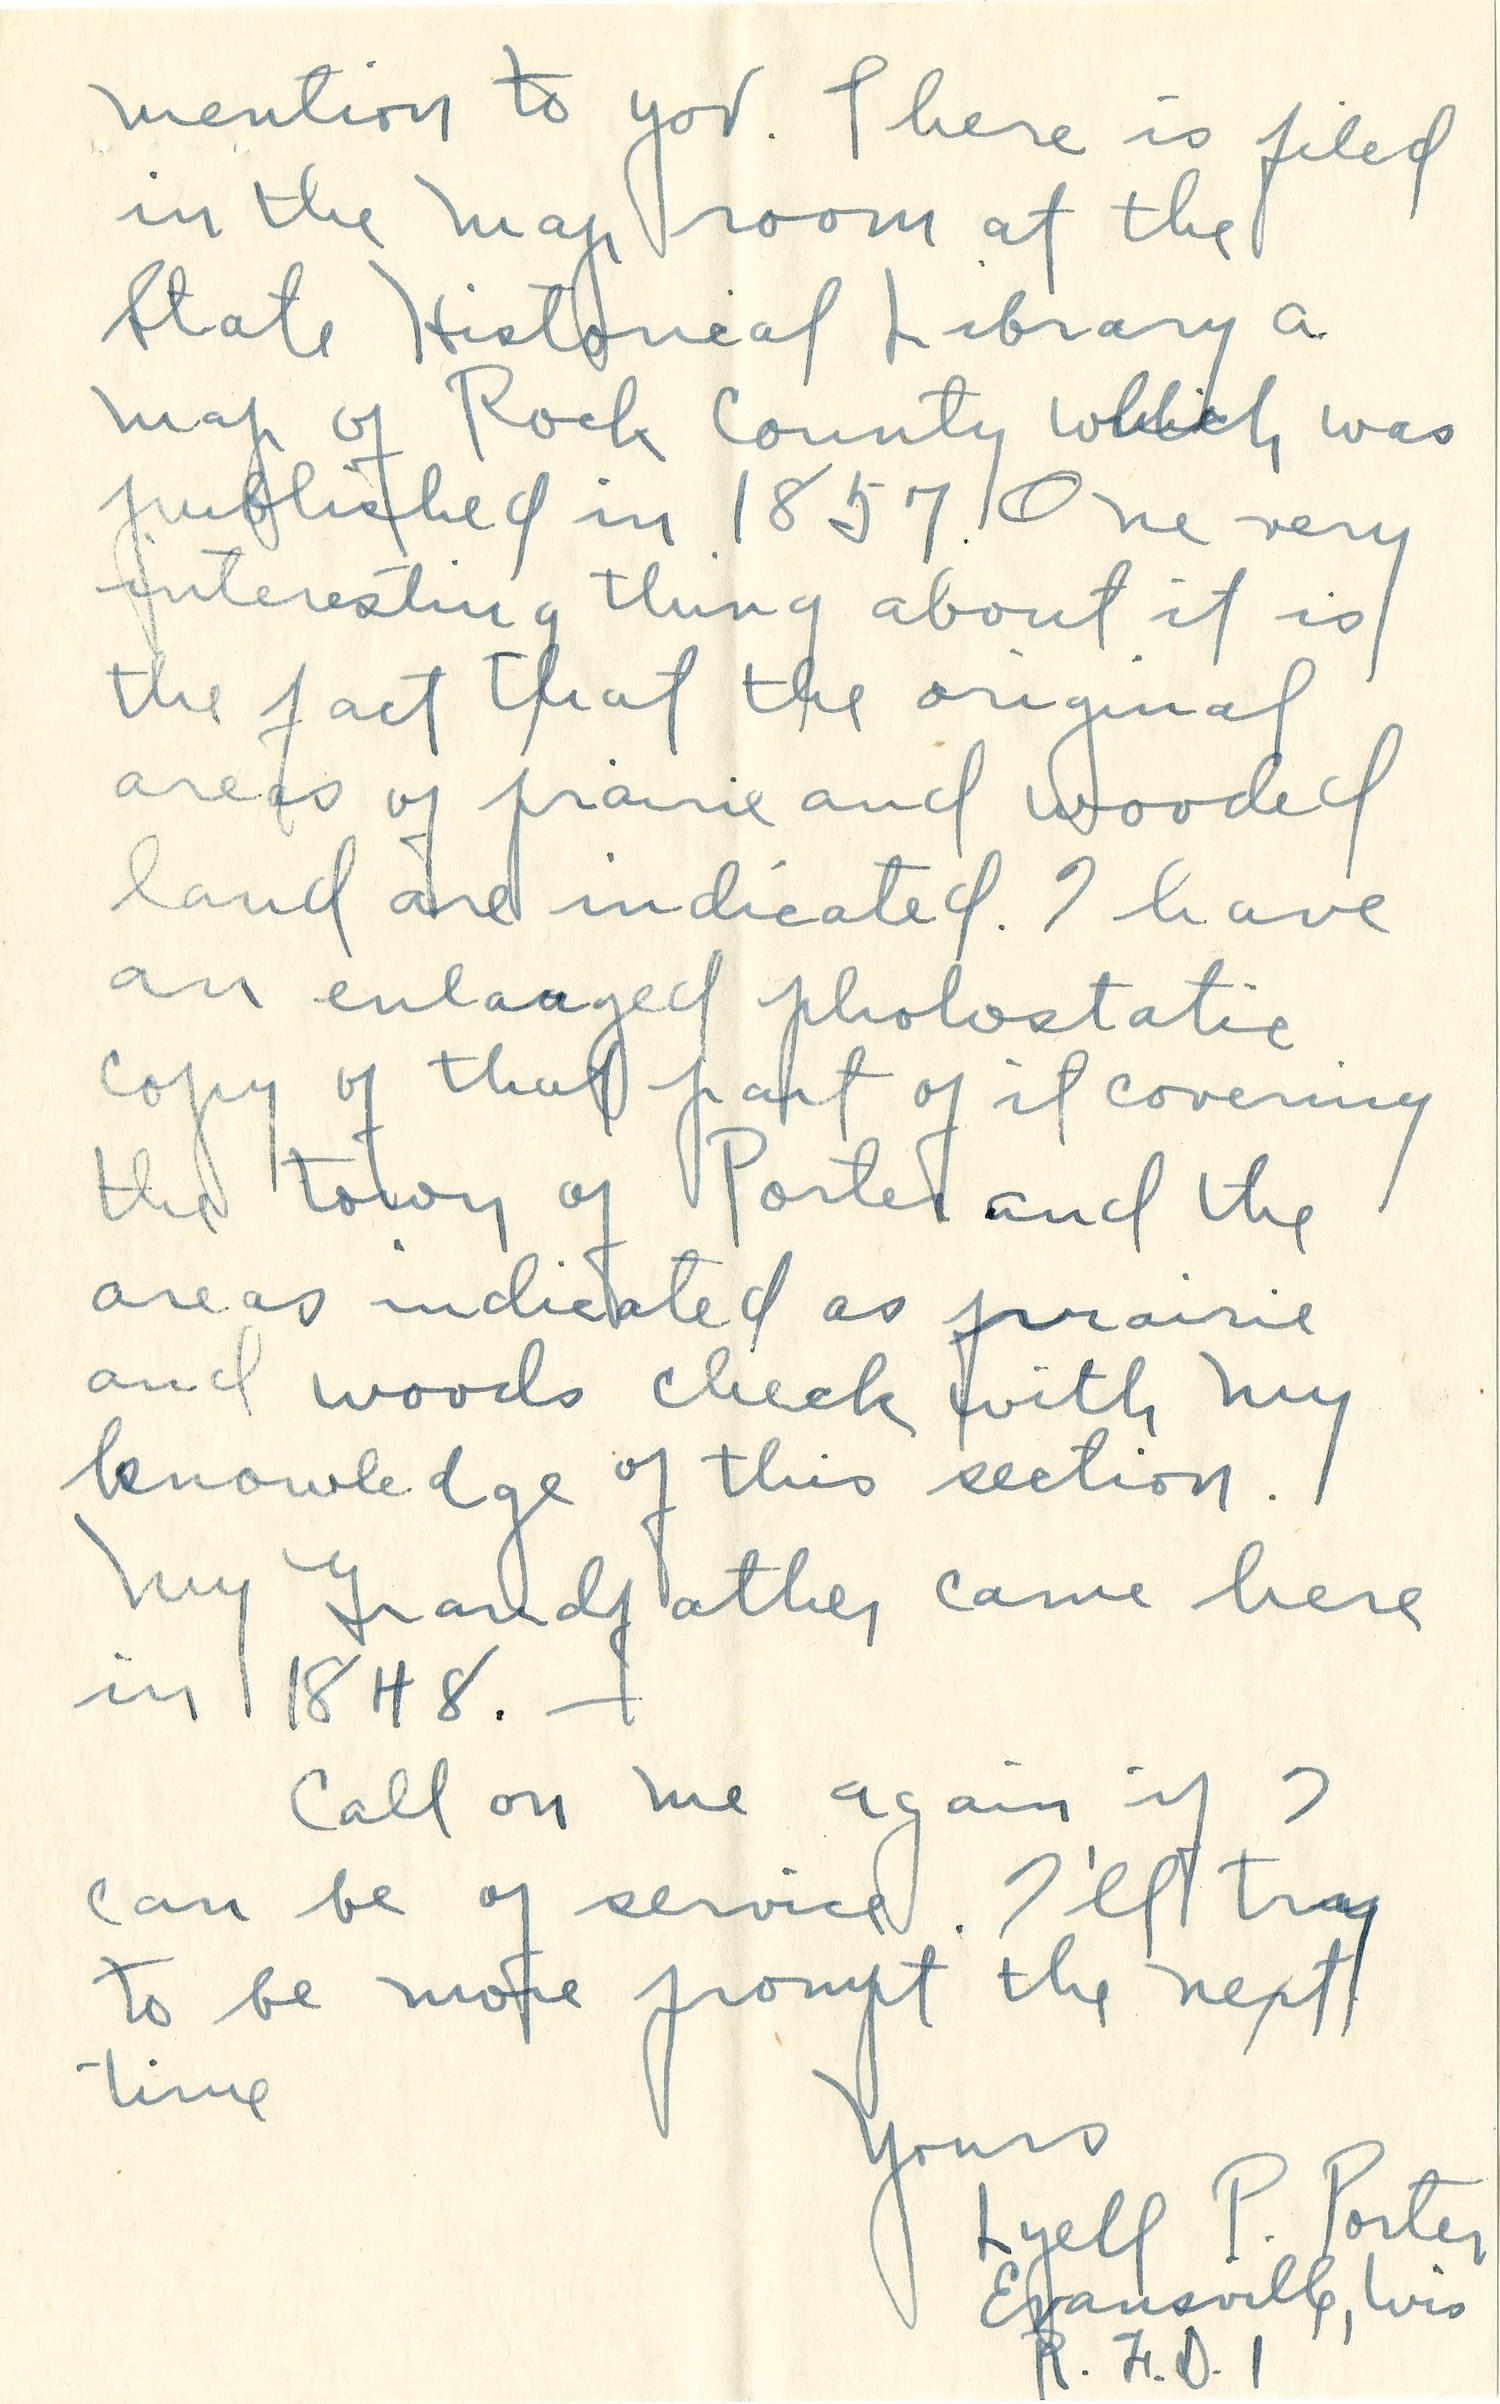 mention to you. There is filed
in the map room at the
State Historical Library a
map of Rock County which was
published in 1857. One very
interesting thing about it is
the fact that the original
areas of prairie and wooded
land are indicated. I have
an enlarged photostatic
copy of that part of it covering
the town of Porter and the
areas indicated as prairie
and woods check with my
knowledge of this section.
My Grandfather came here
in 1848. —
Call on me again if I
can be of service. I'll try
to be more prompt the next
time
Yours
Lyell P. Porter
Evansville, Wis
R.F.D. 1